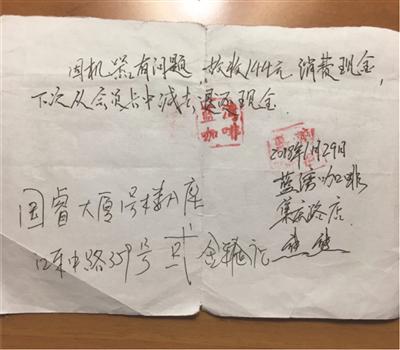 因机器有问题，故收144元消费现金，
下次从会员卡中减去退还现金.
蓝湾
咖啡
2018年1月29日
蓝湾咖啡
集庆路店.
国睿大厦号楼A座
江东中路359号